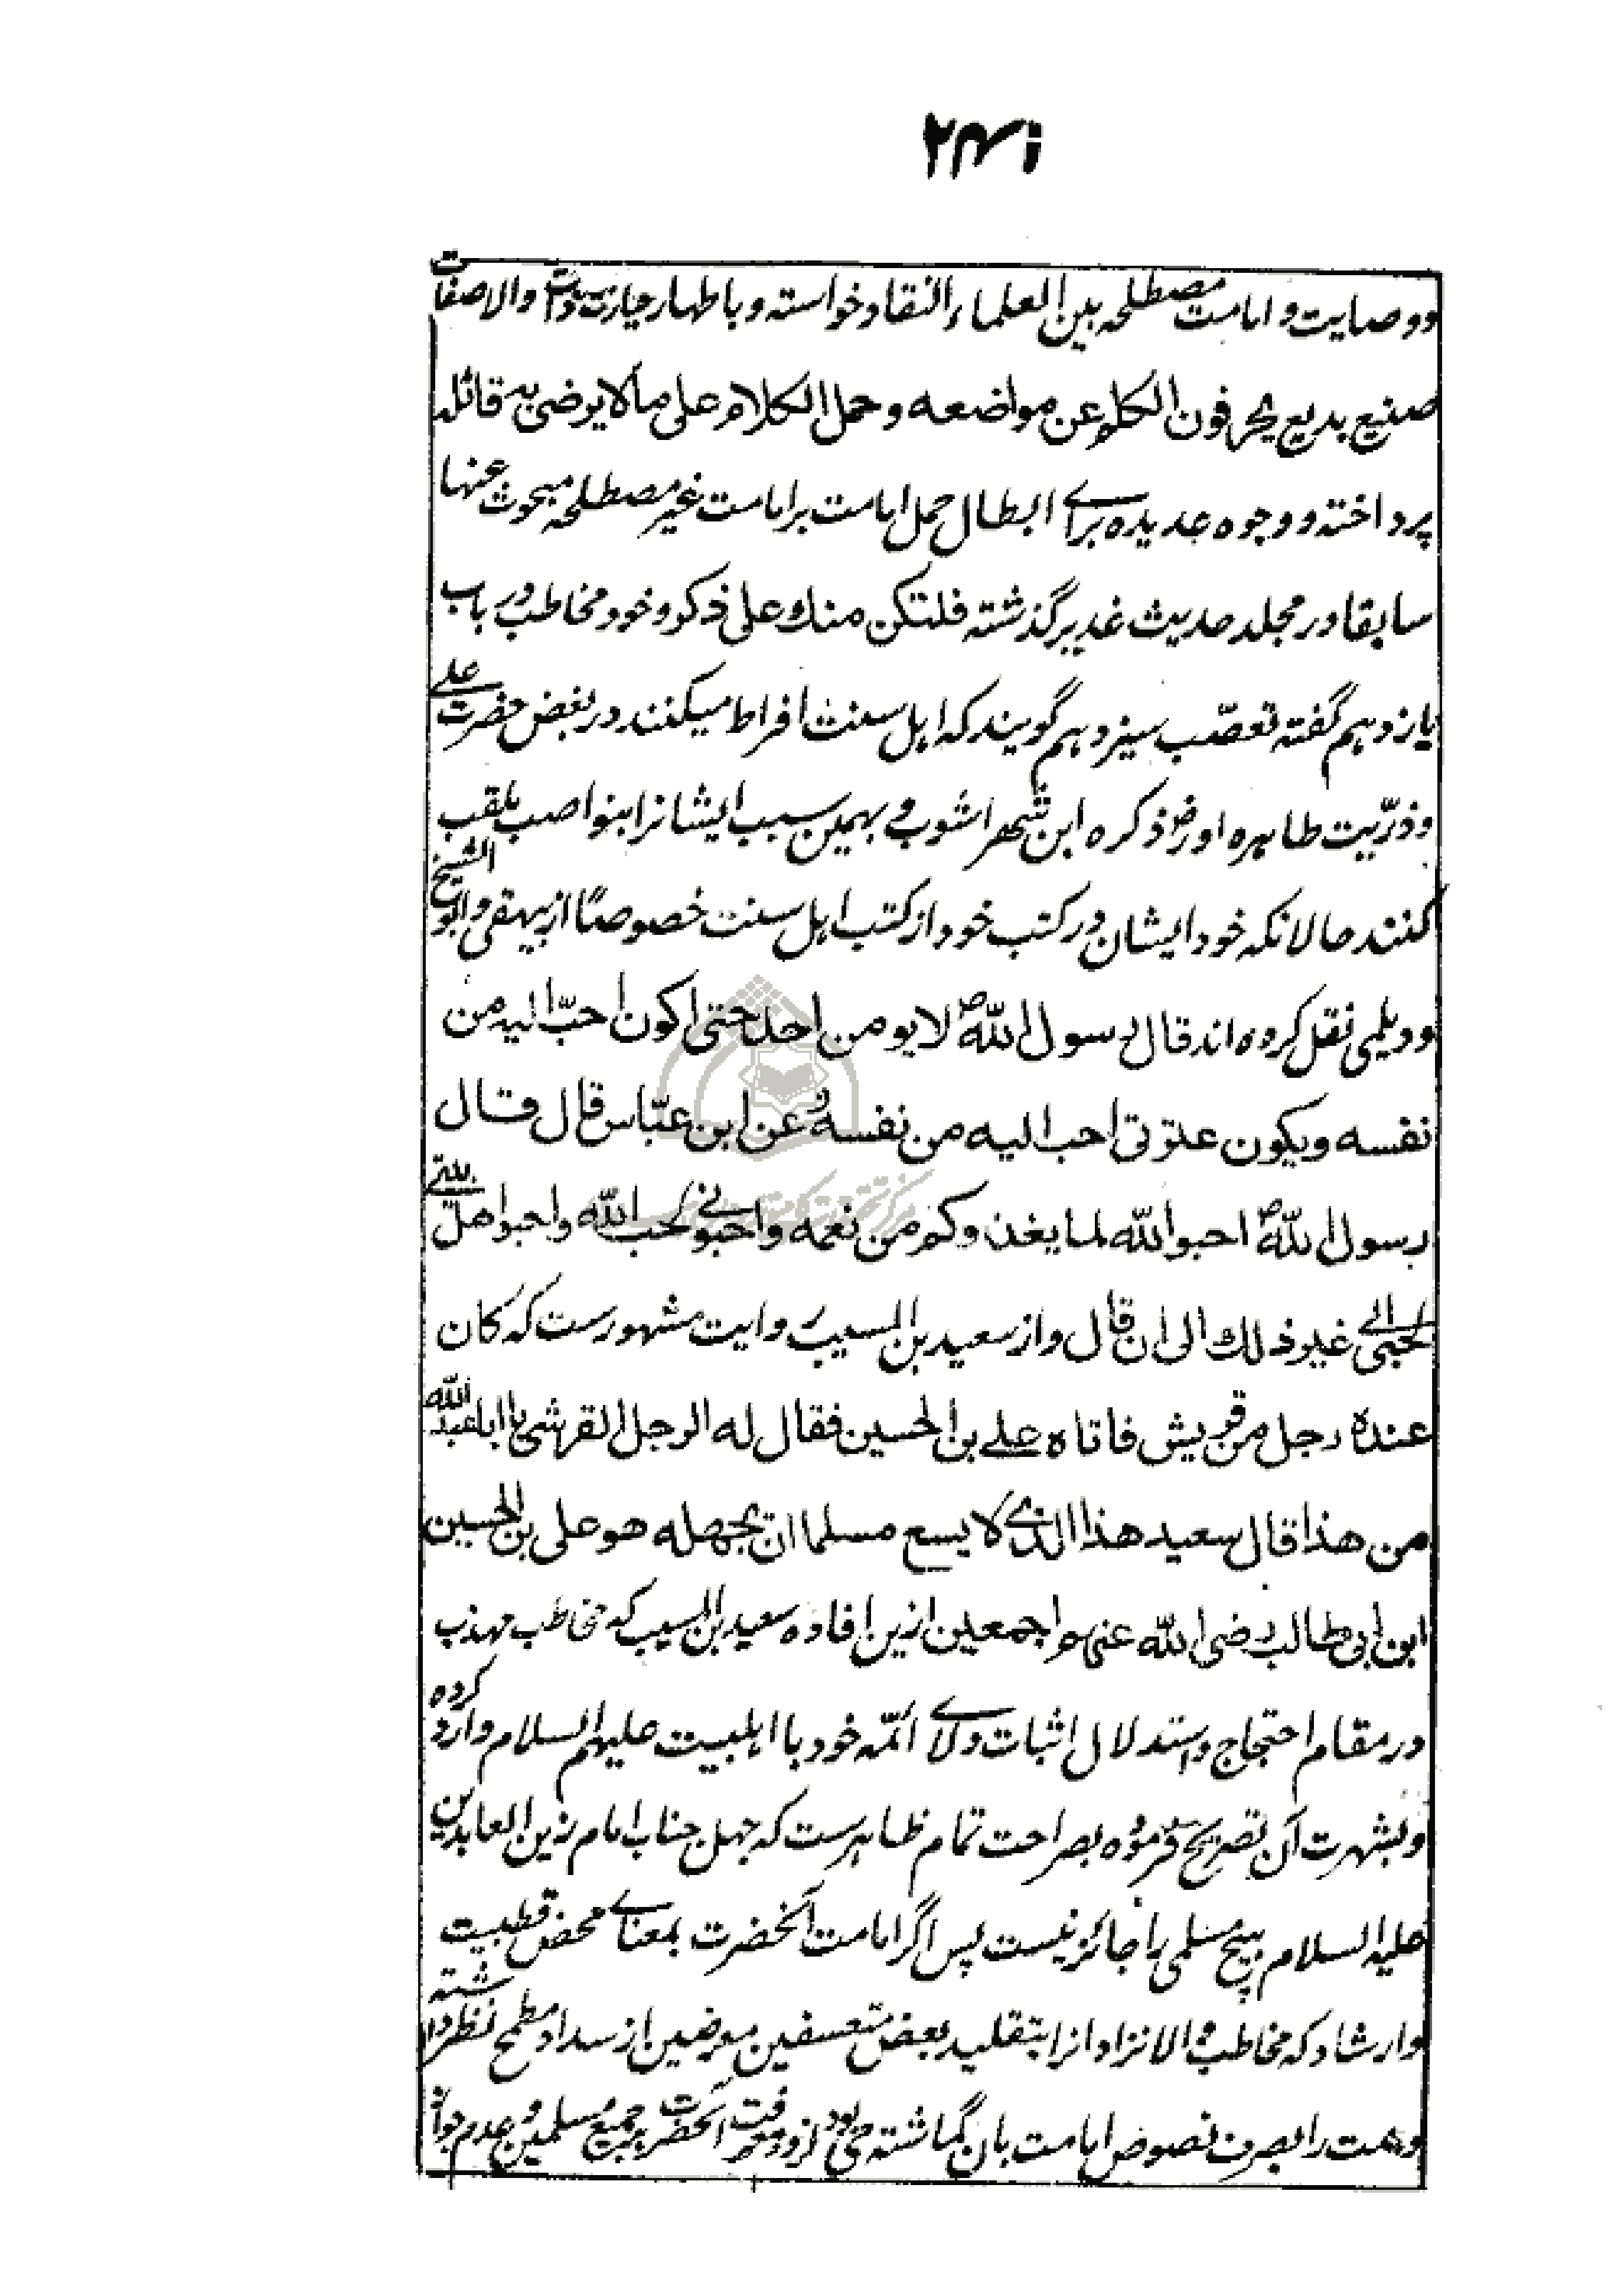 ۲۴۱
و وصایت و امامت مصطلحه بین العلماء النقاد خواسته و باظهار حیازت سیادت والاصفات
صنیع بدیع یحرفون الکلم عن مواضعه و حمل الکلام علی مالا یرضی به قائله
پرداخته و وجوه عدیده برای ابطال حمل امامت بر امامت غیر مصطلحه مبحوث عنها
سابقا در مجلد حدیث غدیر گذشته فلتکن منك علی ذکر و خود مخاطب در باب
یازدهم گفته تعصّب سیزدهم گویند که اهل سنت افراط میکنند در بغض حضرت علی
و ذرّیت طاهره او رض ذکره ابن شهر اشوب و بهمین سبب ایشانرا بنواصب ملقب
کنند حالانکه خود ایشان در کتب خود از کتب اهل سنت خصوصًا از بیهقی و ابو الشیخ
و دیلمی نقل کرده اند قال رسول اللّه ص لا یومن احد حتی اکون احبّ الیه من
نفسه ویکون عترتی احب الیه من نفسه و عن ابن عبّاس قال قال
رسول اللّه ص احبوا اللّه لما یغذوکم من نعمه واحبونی لحب اللّه واحبوا اهل بیتی
لحبی الی غیر ذلك الی ان قال و از سعید بن المسیب روایت مشهورست که کان
عنده رجل من قریش فاتاه علی بن الحسین فقال له الرجل القرشی یا ابا عبد اللّه
من هذا قال سعید هذا الذی لا یسع مسلما ان یجهله هو علی بن الحسین
ابن ابی طالب رضی اللّه عنهم اجمعین ازین افاده سعید بن المسیب که مخاطب مهذب
در مقام احتجاج و استدلال اثبات ولای ائمّه خود با اهلبیت علیهم السلام وارد کرده
و بشهرت آن تصریح فرموده بصراحت تمام ظاهرست که جهل جناب امام زین العابدین
علیه السلام هیچ مسلمی را جائز نیست پس اگر امامت آنحضرت بمعنای محض قطبیت
و ارشاد که مخاطب والانژاد انرا بتقلید بعض متعسفین معرضین از سداد مطمح نظر داشته
و همت را بصرف نصوص امامت بان گماشته می بود لزوم معرفت آنحضرت بر جمیع مسلمین و عدم جواز